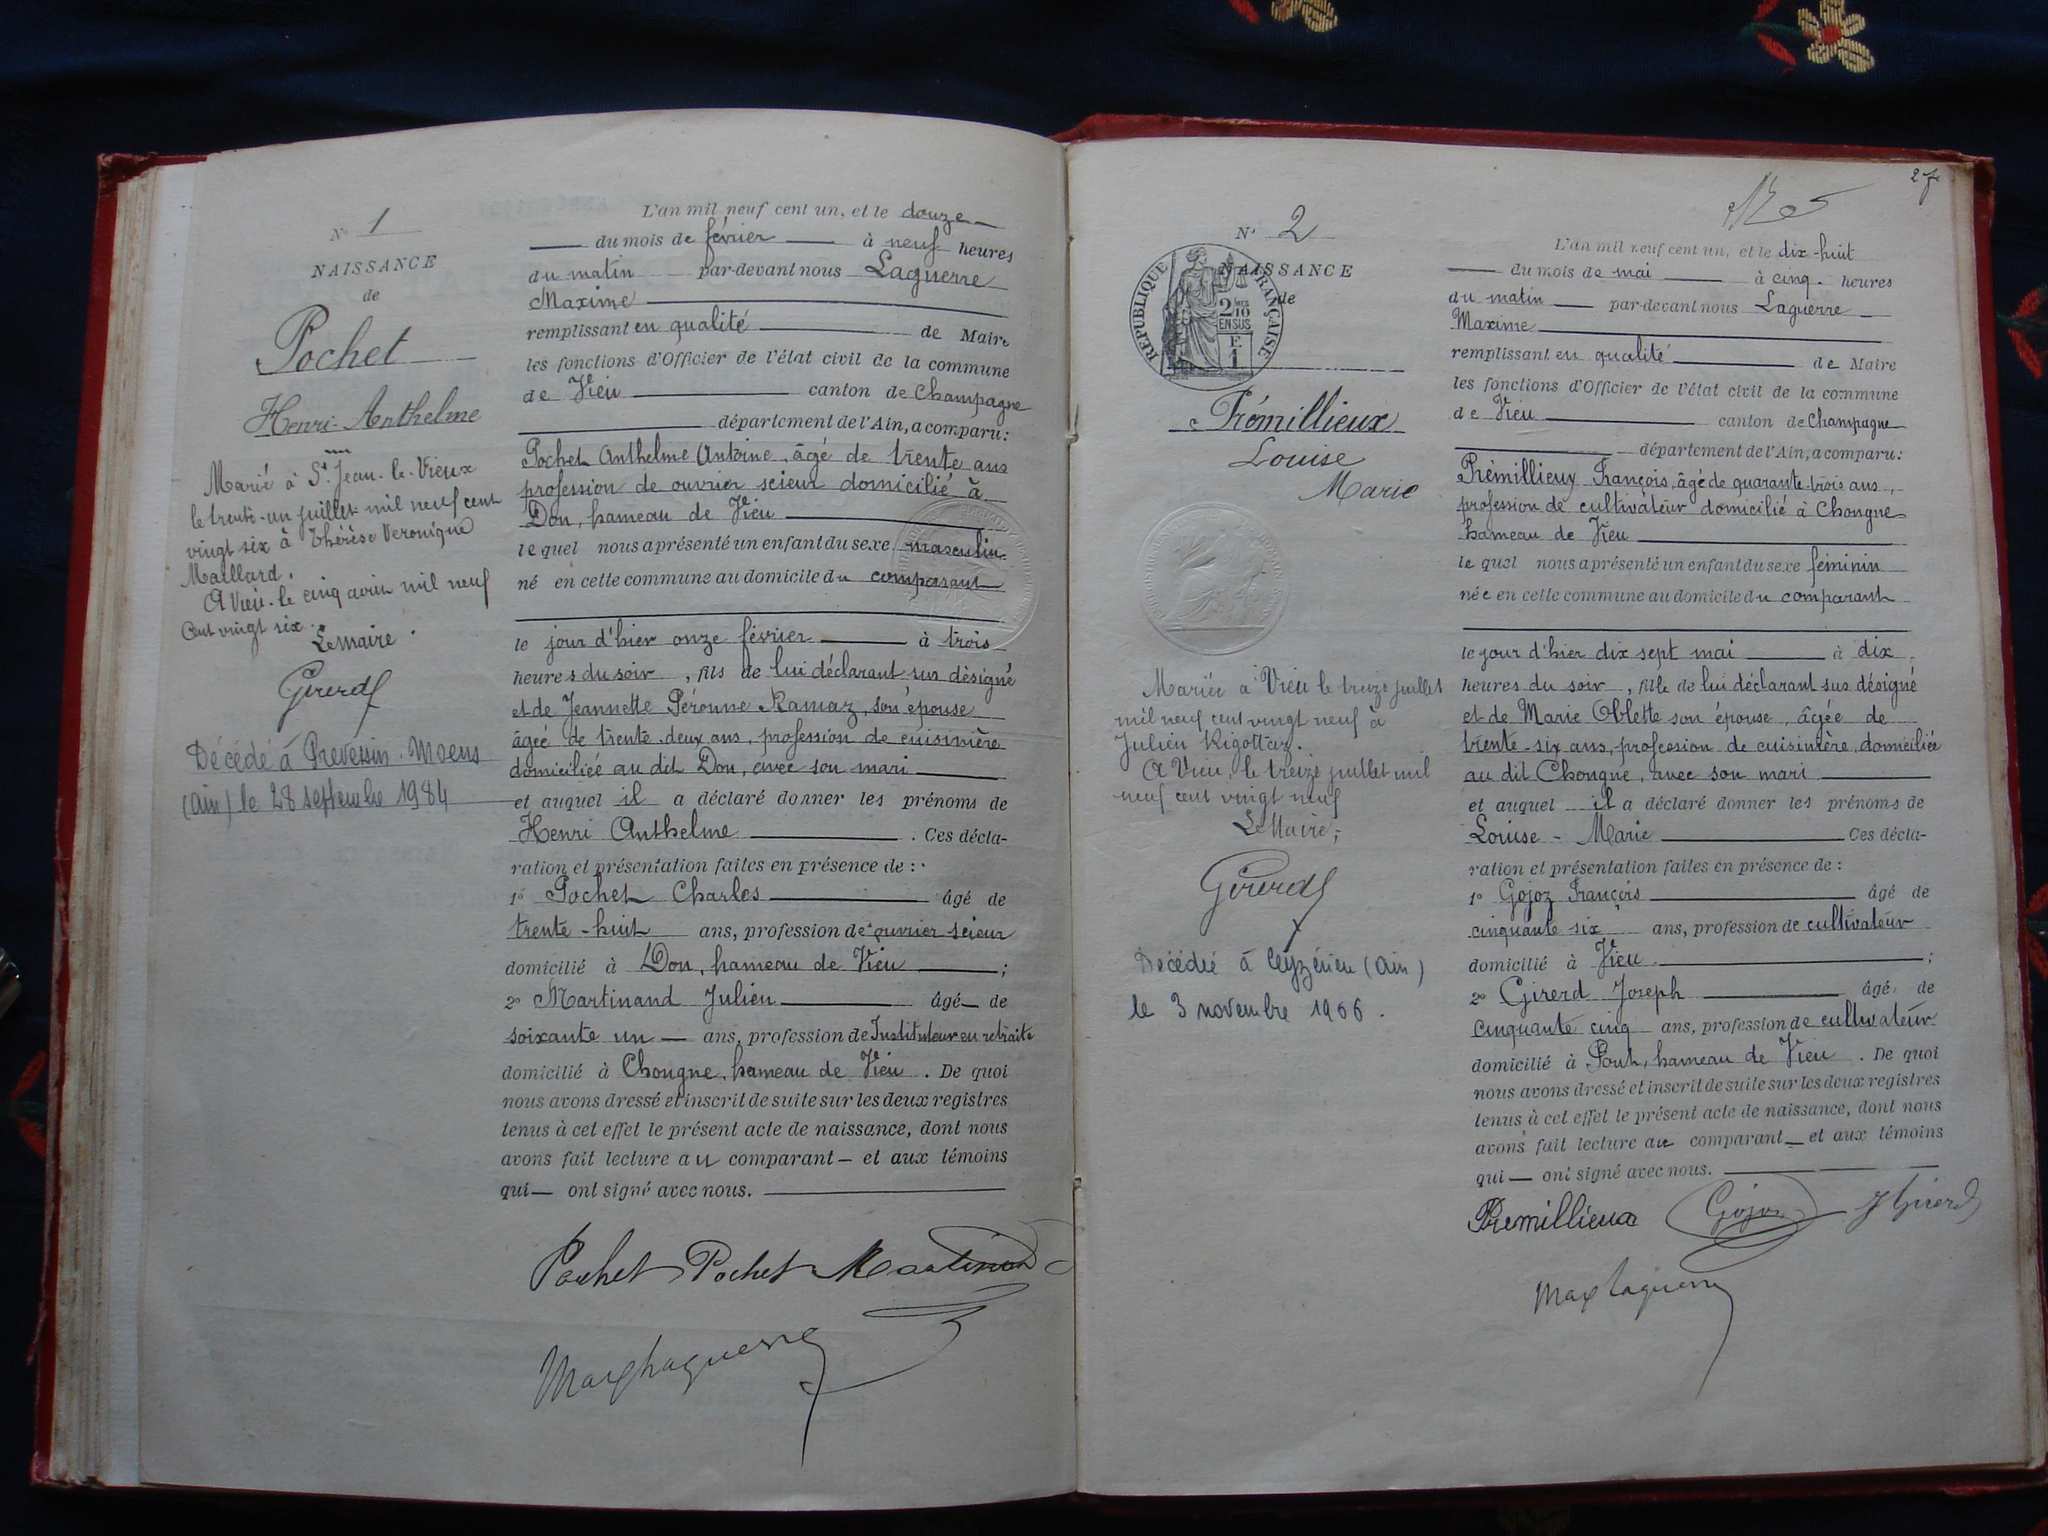 N° 1
NAISSANCE
de
Pochet
Henri-Anthelme
Marié à St Jean-le-Vieux
le trente-un juillet mil neuf cent
vingt six à Thérèse Veronique
Maillard.
A Vieu, le cinq août mil neuf
cent vingt six.
Le Maire.
Girerd
Décédé à Prévessin-Moens
(Ain) le 28 septembre 1984
L'an mil neuf cent un, et le douze
du mois de février à neuf heures
du matin par-devant nous Laguerre
Maxime
remplissant en qualité de Maire
les fonctions d'Officier de l'état civil de la commune
de Vieu canton de Champagne
département de l'Ain, a comparu:
Pochet Anthelme Antoine, âgé de trente ans
profession de ouvrier scieur domicilié à
Don, hameau de Vieu
lequel nous a présenté un enfant du sexe masculin
né en cette commune au domicile du comparant
le jour d'hier onze février à trois
heures du soir, fils de lui déclarant sus désigné
et de Jeannette Péronne Ramaz, son épouse
âgée de trente-deux ans, profession de cuisinière
domiciliée au dit Don, avec son mari
et auquel il a déclaré donner les prénoms de
Henri Anthelme. Ces décla-
ration et présentation faites en présence de:
1° Pochet Charles âgé de
trente-huit ans, profession de ouvrier scieur
domicilié à Don, hameau de Vieu;
2° Martinand Julien âgé de
soixante un ans, profession de Instituteur en retraite
domicilié à Chongne, hameau de Vieu. De quoi
nous avons dressé et inscrit de suite sur les deux registres
tenus à cet effet le présent acte de naissance, dont nous
avons fait lecture au comparant et aux témoins
qui ont signé avec nous.
Pochet Pochet Martinand
Max Laguerre
2
N° 2
NAISSANCE
de
RÉPUBLIQUE FRANÇAISE
2/10
EN SUS
E
1
Prémillieux
Louise
Marie
Mariée à Vieu le treize juillet
mil neuf cent vingt neuf à
Julien Rigottaz.
A Vieu, le treize juillet mil
neuf cent vingt neuf
Le Maire;
Girerd
Décédée à Ceyzérieu (Ain)
le 3 novembre 1966.
L'an mil neuf cent un, et le dix-huit
du mois de mai à cinq heures
du matin par-devant nous Laguerre
Maxime
remplissant en qualité de Maire
les fonctions d'Officier de l'état civil de la commune
de Vieu canton de Champagne
département de l'Ain, a comparu:
Prémillieux François, âgé de quarante-trois ans,
profession de cultivateur domicilié à Chongne
hameau de Vieu
lequel nous a présenté un enfant du sexe féminin
née en cette commune au domicile du comparant
le jour d'hier dix sept mai à dix
heures du soir, fille de lui déclarant sus désigné
et de Marie Oblette son épouse, âgée de
trente-six ans, profession de cuisinière, domiciliée
au dit Chongne, avec son mari
et auquel il a déclaré donner les prénoms de
Louise-Marie Ces décla-
ration et présentation faites en présence de:
1° Gojoz François âgé de
cinquante six ans, profession de cultivateur
domicilié à Vieu;
2° Girerd Joseph âgé de
cinquante cinq ans, profession de cultivateur
domicilié à Pont, hameau de Vieu. De quoi
nous avons dressé et inscrit de suite sur les deux registres
tenus à cet effet le présent acte de naissance, dont nous
avons fait lecture au comparant et aux témoins
qui ont signé avec nous.
Premillieux Gojoz J Girerd
Max Laguerre